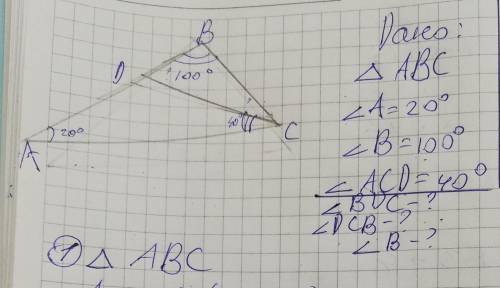 B
D
100°
20°
40°
C
A
Дано:
△ ABC
∠A=20°
∠B=100°
∠ACD=40°
∠BDC-?
∠DCB-?
∠B-?
① △ ABC